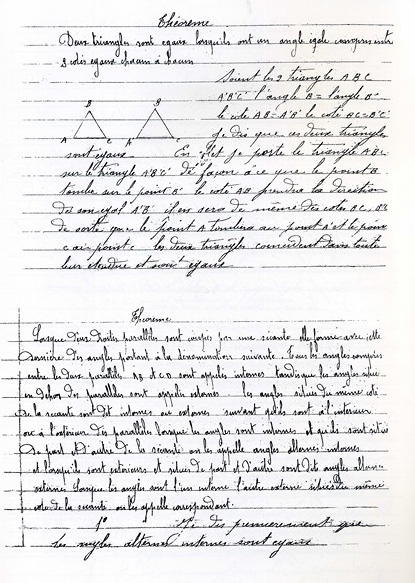 Théoreme
Deux triangles sont egaux lorsqu'ils ont un angle égale compris entre
2 cotés egaux chacun à chacun
Soient les 2 triangles ABC
A'B'C' l'angle B = l'angle B'
le cote AB = A'B' le coté BC = B'C'
B B'
je dis que ces deux triangles
A C A' C'
sont egaux En effet je porte le triangle ABC
sur le triangle A'B'C' de façon à ce que le point B
tombe sur le point B' le coté AB prendra la direction
de son egal A'B' il en sera de même des cotes BC,
de sorte que le point A tombera au point A' et le point
C au point les deux triangles coincident dans toute
leur etendue et sont egaux
Théoreme
Lorsque deux droites paralleles sont coupées par une sécante elle forme avec cette
dernière des angles portant à la dénomination suivante. Tous les angles compris
entre les deux paralleles AB et CD sont appelés internes tandis que les angles
en dehors des paralleles sont appelés externes les angles situés du même coté
de la secante sont dit internes ou externes suivant qu'ils sont à l'interieur
ou à l'exterieur des paralleles lorsque les angles sont internes et qu'ils sont situés
de part et d'autre de la secante on les appelle angles alternes internes
et lorsqu'ils sont exterieurs et situes de part et d'autre sont dit angles alternes
externes Lorsque les angles sont l'un interne l'autre externe situés du même
coté de la secante on les appelle correspondant.
1° que
les angles alternes internes sont egaux